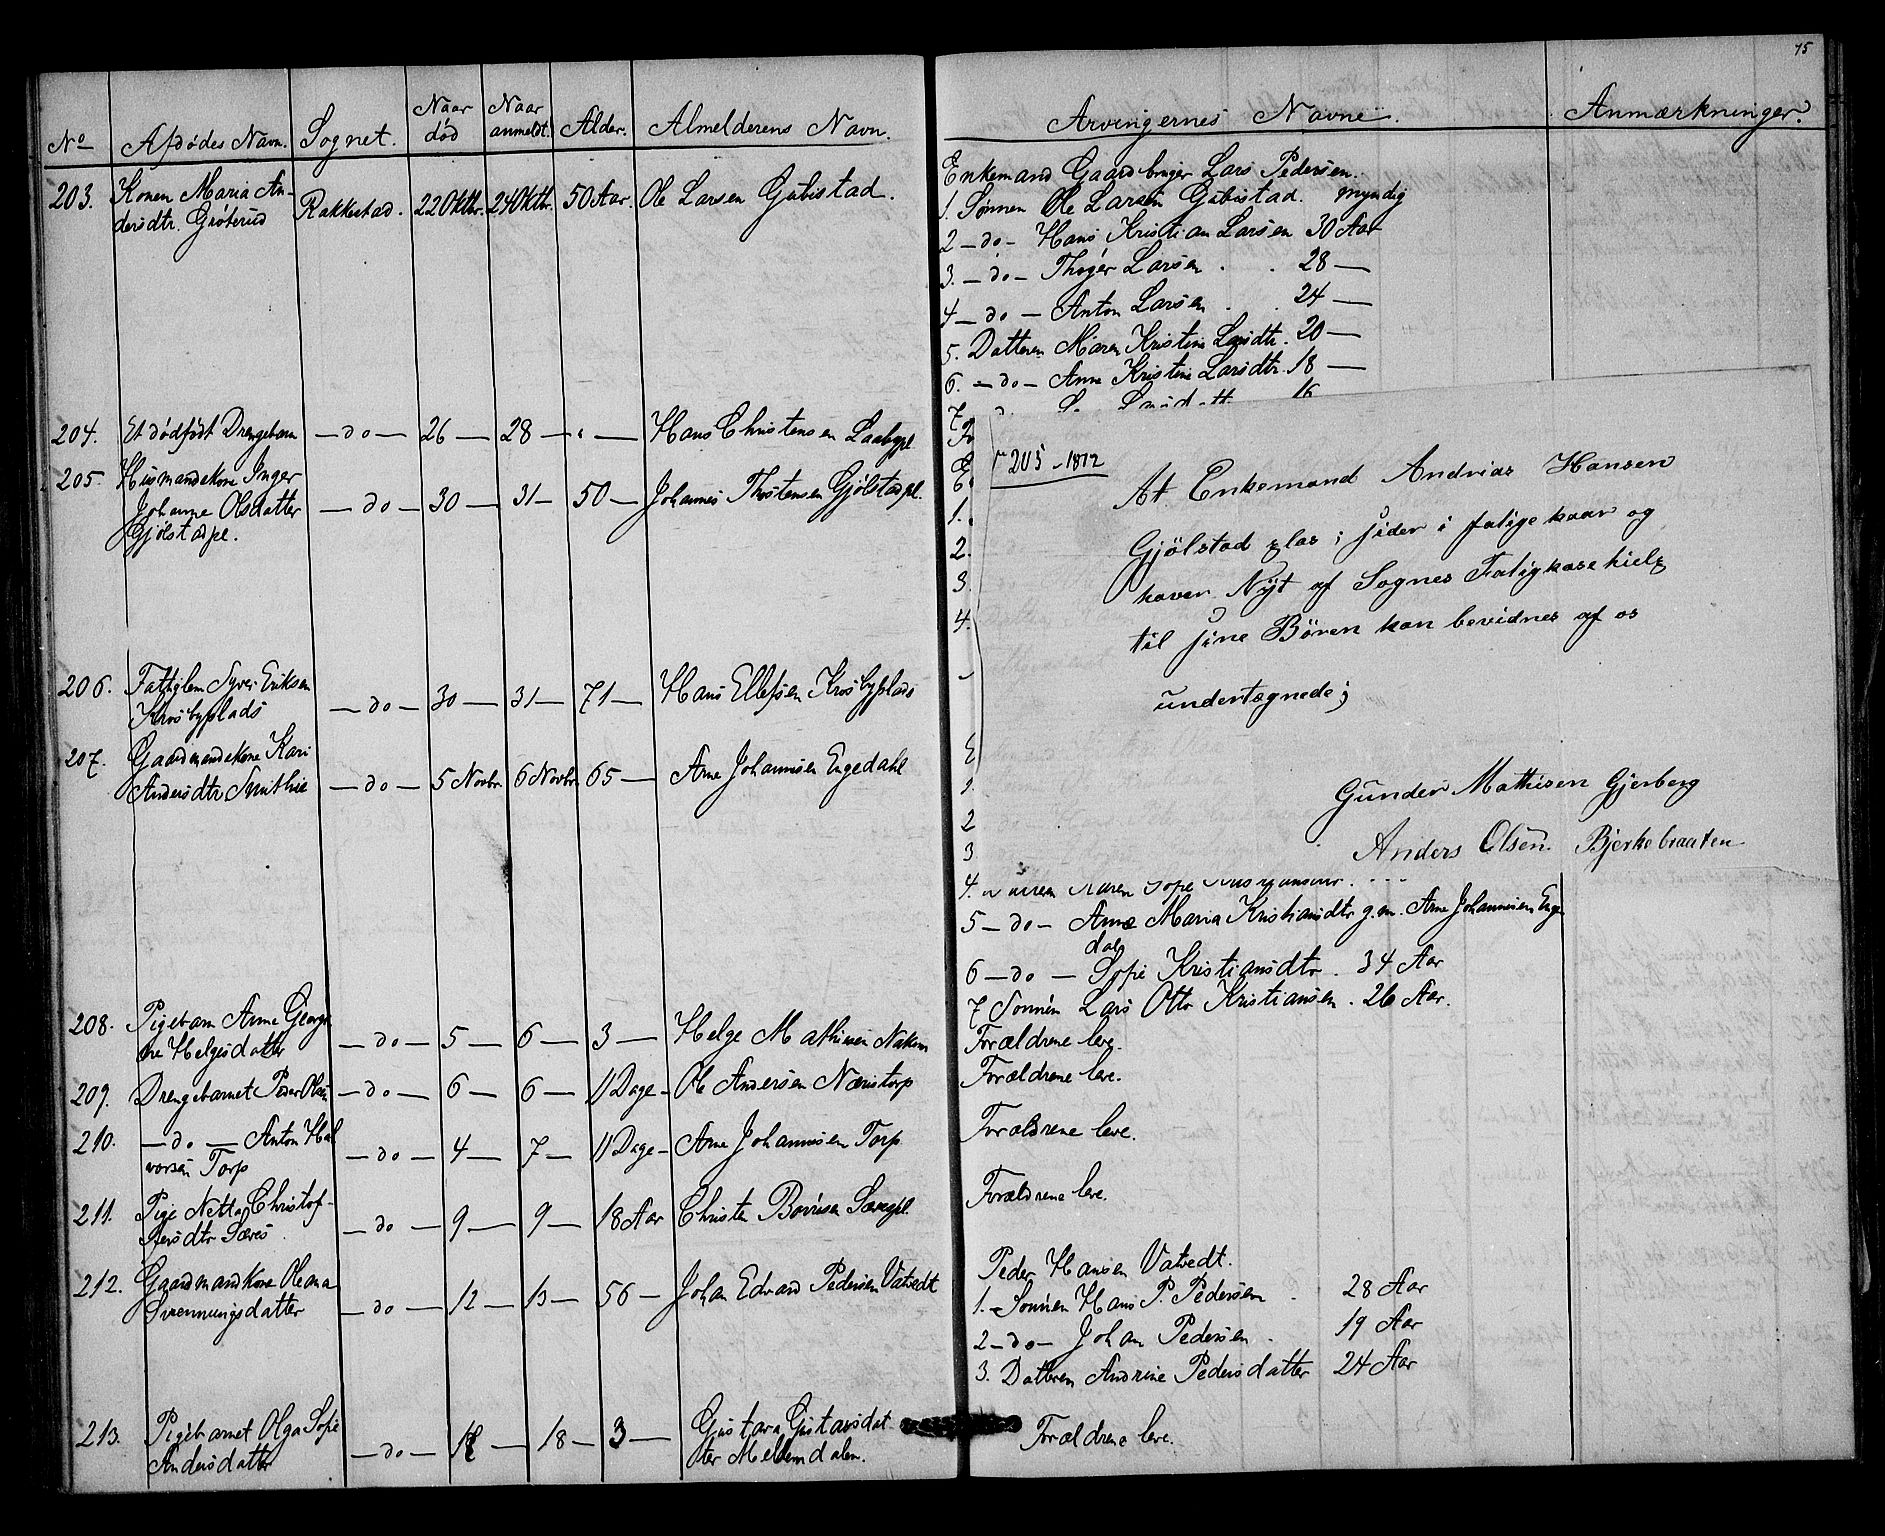 75
No Afdødes Navn. Sognet. Naar død Naar anmeldt. Alder. Almelderens Navn. Arvingernes Navne. Anmærkninger.
203. Konen Maria An-
dersdtr. Gröterud Rakkestad. 22 Oktbr. 24 Oktbr. 50 Aar. Ole Larsen Gubistad.
Enkemand Gaardbruger Lars Pedersen.
1. Sønnen Ole Larsen Gubistad. myndig
2 - do - Hans Kristian Larsen 30 Aar
3. - do - Thoger Larsen . . 28 —
4 - do - Anton Larsen . . 24 —
5. Datteren Maren Kristine Larsdtr. 20 —
6. - do - Anne Kristine Larsdtr. 18 —
7 16
204. Et dødfødt Drengebarn — do — 26 — 28 — " — Hans Christensen Laabypl.
205. Husmandskone Inger
Johanne Olsdatter
Gjölstadpl. — do — 30 — 31 — 50 — Johannes Thostensen Gjölstadpl.
E
1.
2.
3.
4.
205 - 1872
At Enkemand Andrias Hansen
Gjölstad plas; sider i fatige kaar og
haver Nyt af Sognes Fatigkasehielp
til sine Bören kan bevidnes af os
undertegnede;
Gunder Mathisen Gjerberg
Anders Olsen Bjerkebraaten
206. Fattiglem Syver Eriksen
Krosbyplads — do — 30 — 31 — 71 — Hans Ellefsen Krosbyplads
207. Gaardmandskone Kari
Andersdtr Smithie — do — 5 Novbr 6 Novbr 65 — Arne Johannesen Engedahl
E
1.
2
3
4. Karen Sofie
5 — do — Anne Maria Kristiansdtr g.m. Arne Johannesen Enge-
dal
6 — do — Sofie Kristiansdtr. 34 Aar
7 Sonnen Lars Otto Kristiansen. 26 Aar.
208. Pigebarn Anne Georgi
ne Helgesdatter — do — 5 — 6 — 3 — Helge Mathisen Nakim Forældrene leve.
209. Drengebarnet Peder Olsen — do — 6 — 6 — 11 Dage — Ole Andersen Næristorp Forældrene leve.
210. — do — Anton Hal
vorsen Torp — do — 4 — 7 — 11 Dage — Arne Johannesen Torp Forældrene leve.
211. Pige Netta Christof-
fersdtr Sæves — do — 9 — 9 — 18 Aar Christen Sævespl. Forældrene leve.
212. Gaardmandkone Oleana
Svenningsdatter — do — 12 — 13 — 56 — Johan Edvard Pedersen Vatvedt
Peder Hansen Vatvedt.
1. - Sonnen Hans P. Pedersen . 28 Aar
2 - do - Johan Pedersen . 19 Aar
3. Datteren Andrine Pedersdatter 24 Aar
213. Pigebarnet Olga Sofie
Andersdatter — do — 18 — 18 — 3 — Gustava Gustavsdat
ter Mellemdalen. Forældrene leve.